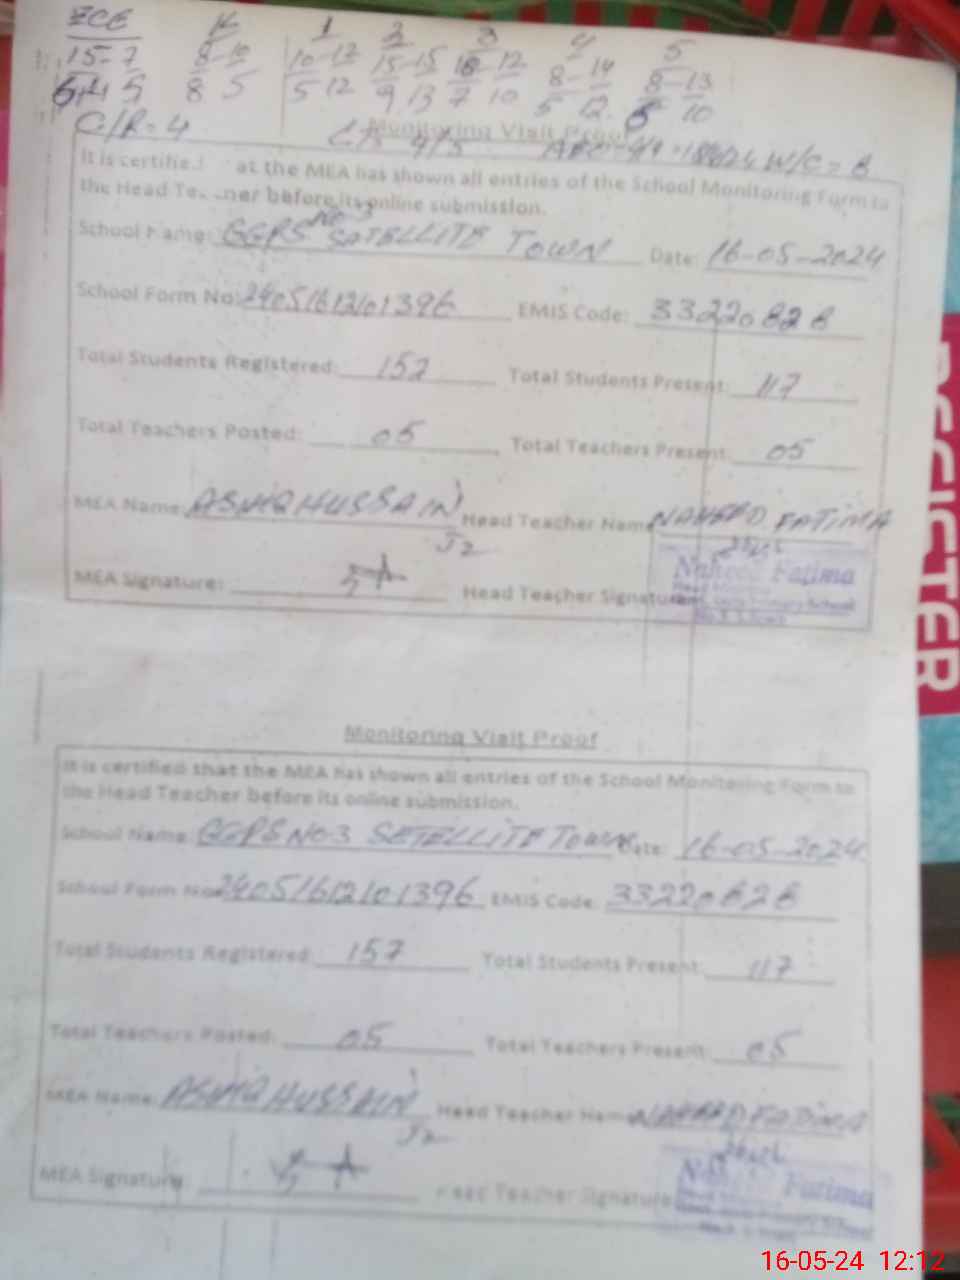 ECE K 1 2 3 4 5
15-7 8-10 10-12 15-15 18-12 8-14 8-13
5 8 5 5 12 9 13 7 10 5 12 10
C/R = 4 W/C = 8
Monitoring Visit Proof
It is certified at the MEA has shown all entries of the School Monitoring Form to
the Head Te ner before its online submission.
School Name: GGPS No 3 SATELLITE TOWN Date: 16-05-2024
School Form No: 24051612101396 EMIS Code: 33220828
Total Students Registered: 157 Total Students Present: 117
Total Teachers Posted: 05 Total Teachers Present: 05
MEA Name: HUSSAIN Head Teacher Name NAHEED FATIMA
J2
MEA Signature: Head Teacher Signature
Naheed Fatima
Primary School
Monitoring Visit Proof
It is certified that the MEA has shown all entries of the School Monitoring Form to
the Head Teacher before its online submission.
School Name: GGPS NO.3 SETELLITE TOWN Date: 16-05-2024
School Form No 24051612101396 EMIS Code: 33220828
Total Students Registered: 157 Total Students Present: 117
Total Teachers Posted: 05 Total Teachers Present: 05
MEA Name: HUSSAIN Head Teacher Name NAHEED FATIMA
J2
MEA Signature: Head Teacher Signature
Naheed Fatima
Primary School
REGISTER
16-05-24 12:12